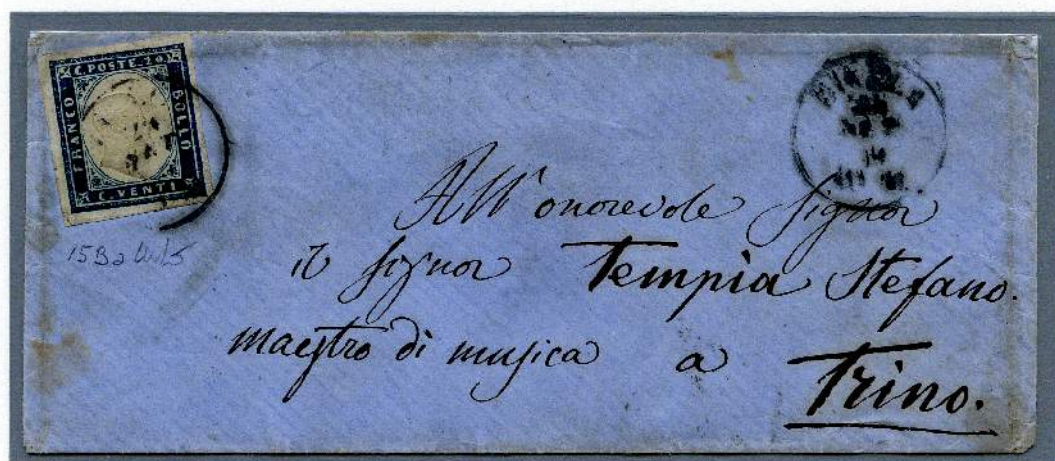 C. POSTE. 20
FRANCO
BOLLO
C. VENTI
BIELLA
All' onorevole Signor
il Signor Tempia Stefano.
maestro di musica a Trino.